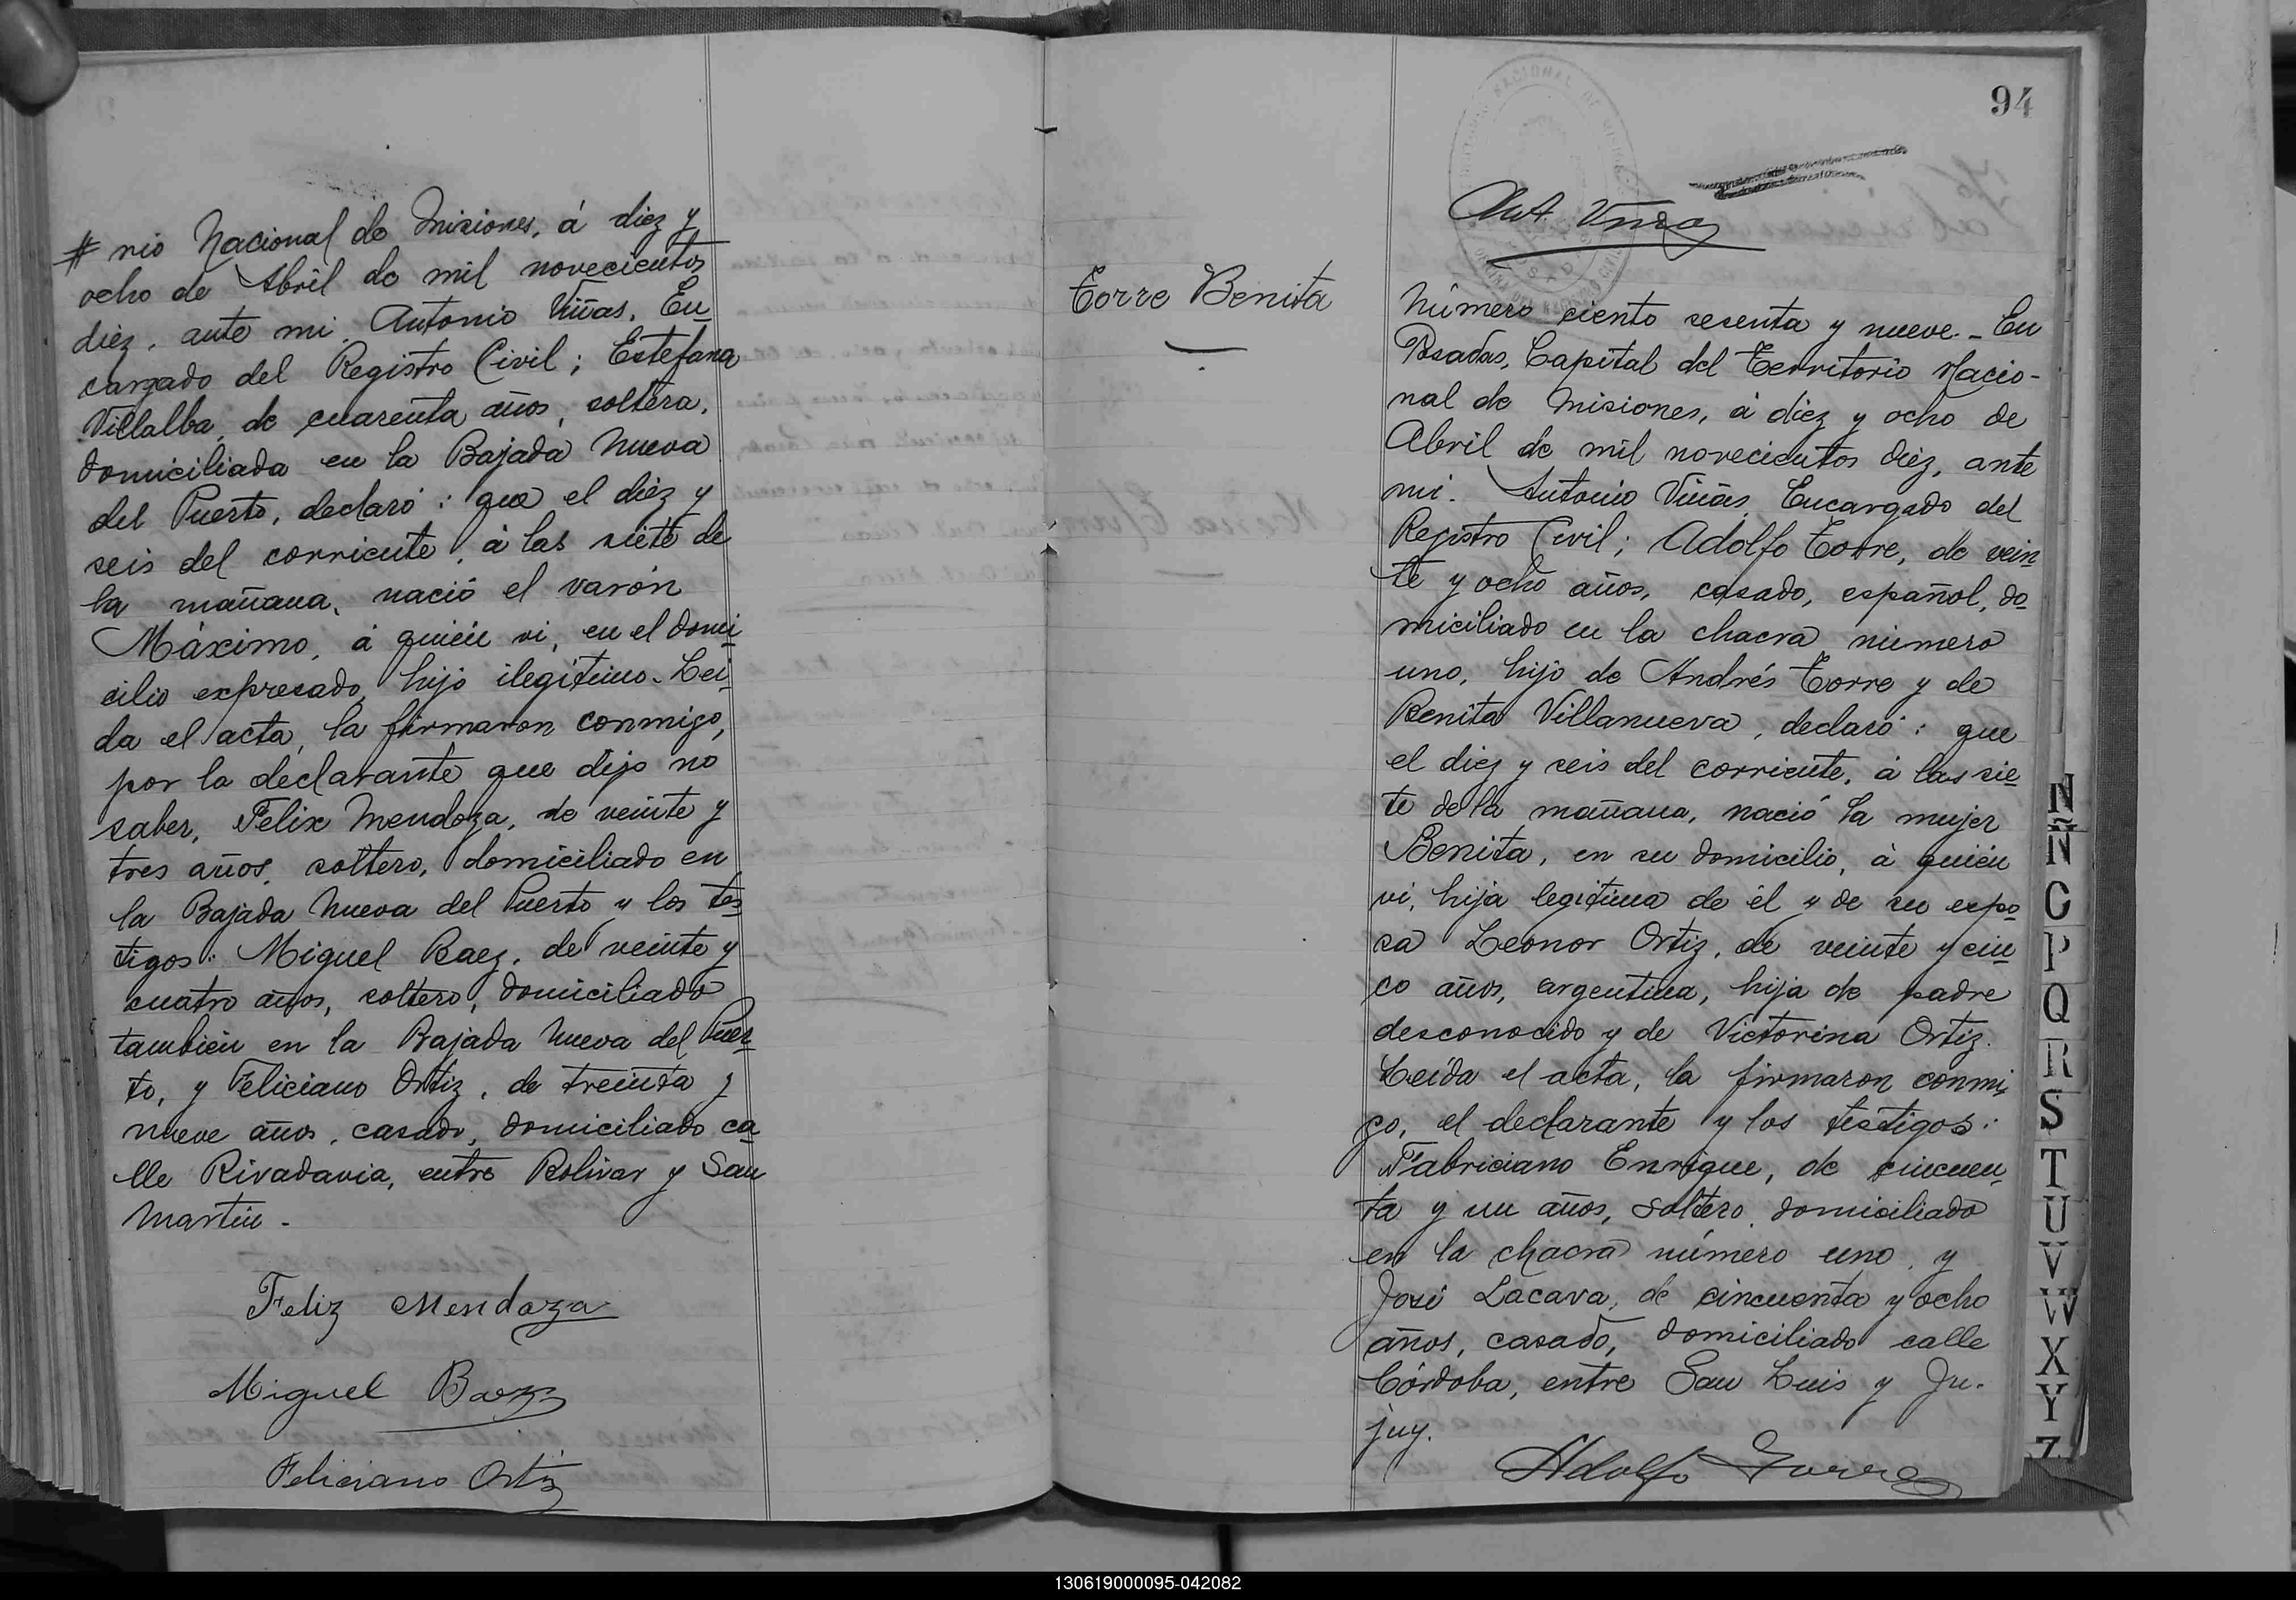 # rio Nacional de Misiones, á diez y
ocho de Abril de mil novecientos
diez, ante mi, Antonio Viñas, En
cargado del Registro Civil; Estefana
Villalba, de cuarenta años, soltera,
domiciliada en la Bajada Nueva
del Puerto, declaró: que el diez y
seis del corriente, á las siete de
la mañana, nació el varón
Máximo, á quién vi, en el domi
cilio expresado, hijo ilegítimo. Lei
da el acta, la firmaron conmigo,
por la declarante que dijo no
saber, Felix Mendoza, de veinte y
tres años, soltero, domiciliado en
la Bajada Nueva del Puerto y los tes
tigos: Miguel Baez, de veinte y
cuatro años, soltero, domiciliado
también en la Bajada Nueva del Puer
to, y Feliciano Ortiz, de treinta y
nueve años, casado, domiciliado ca
lle Rivadavia, entre Bolivar y San
Martin.
Feliz Mendoza
Miguel Baez
Feliciano Ortiz
94
Ant. Vinas
Torre Benita
Número ciento sesenta y nueve. - En
Posadas, Capital del Territorio Nacio-
nal de Misiones, á diez y ocho de
Abril de mil novecientos diez, ante
mi. Antonio Viñas, Encargado del
Registro Civil; Adolfo Torre, de vein
te y ocho años, casado, español, do
miciliado en la chacra número
uno, hijo de Andrés Torre y de
Benita Villanueva, declaró: que
el diez y seis del corriente, á las sie
te de la mañana, nació la mujer
Benita, en su domicilio, á quién
vi, hija legitima de él y de su espo
sa Leonor Ortiz, de veinte y cin
co años, argentina, hija de padre
desconocido y de Victorina Ortiz.
Leída el acta, la firmaron conmi
go, el declarante y los testigos:
Fabriciano Enrique, de cincuen
ta y un años, soltero, domiciliado
en la chacra número uno, y
José Lacava, de cincuenta y ocho
años, casado, domiciliado calle
Córdoba, entre San Luis y Ju-
juy.
Adolfo Torre
N
Ñ
O
P
Q
R
S
T
U
V
W
X
Y
Z
130619000095-042082